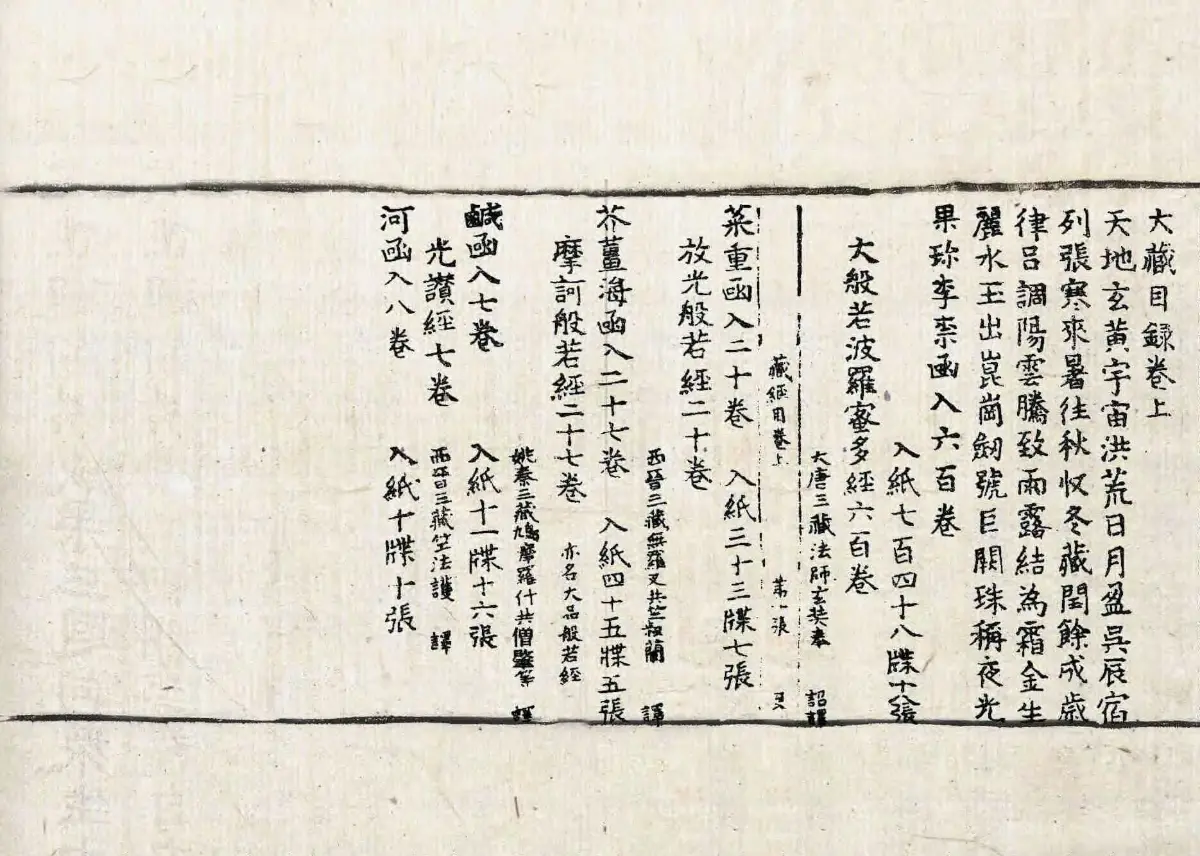 大藏目録卷上
天地玄黄宇宙洪荒日月盈昃辰宿
列張寒來暑往秋收冬藏閏餘成歲
律呂調陽雲騰致雨露結為霜金生
麗水玉出崑崗劔號巨闕珠稱夜光
果珍李柰函入六百卷
入紙七百四十八牒十張
大般若波羅蜜多經六百卷
大唐三藏法師玄奘奉 詔譯
藏經目卷上 第一張
菜重函入二十卷 入紙三十三牒七張
放光般若經二十卷
西晉三藏無羅叉共竺叔蘭 譯
芥薑海函入二十七卷 入紙四十五牒五張
摩訶般若經二十七卷 亦名大品般若經
姚秦三藏鳩摩羅什共僧肇等 譯
鹹函入七卷 入紙十一牒十六張
光讃經七卷 西晉三藏竺法護 譯
河函入八卷 入紙十牒十張